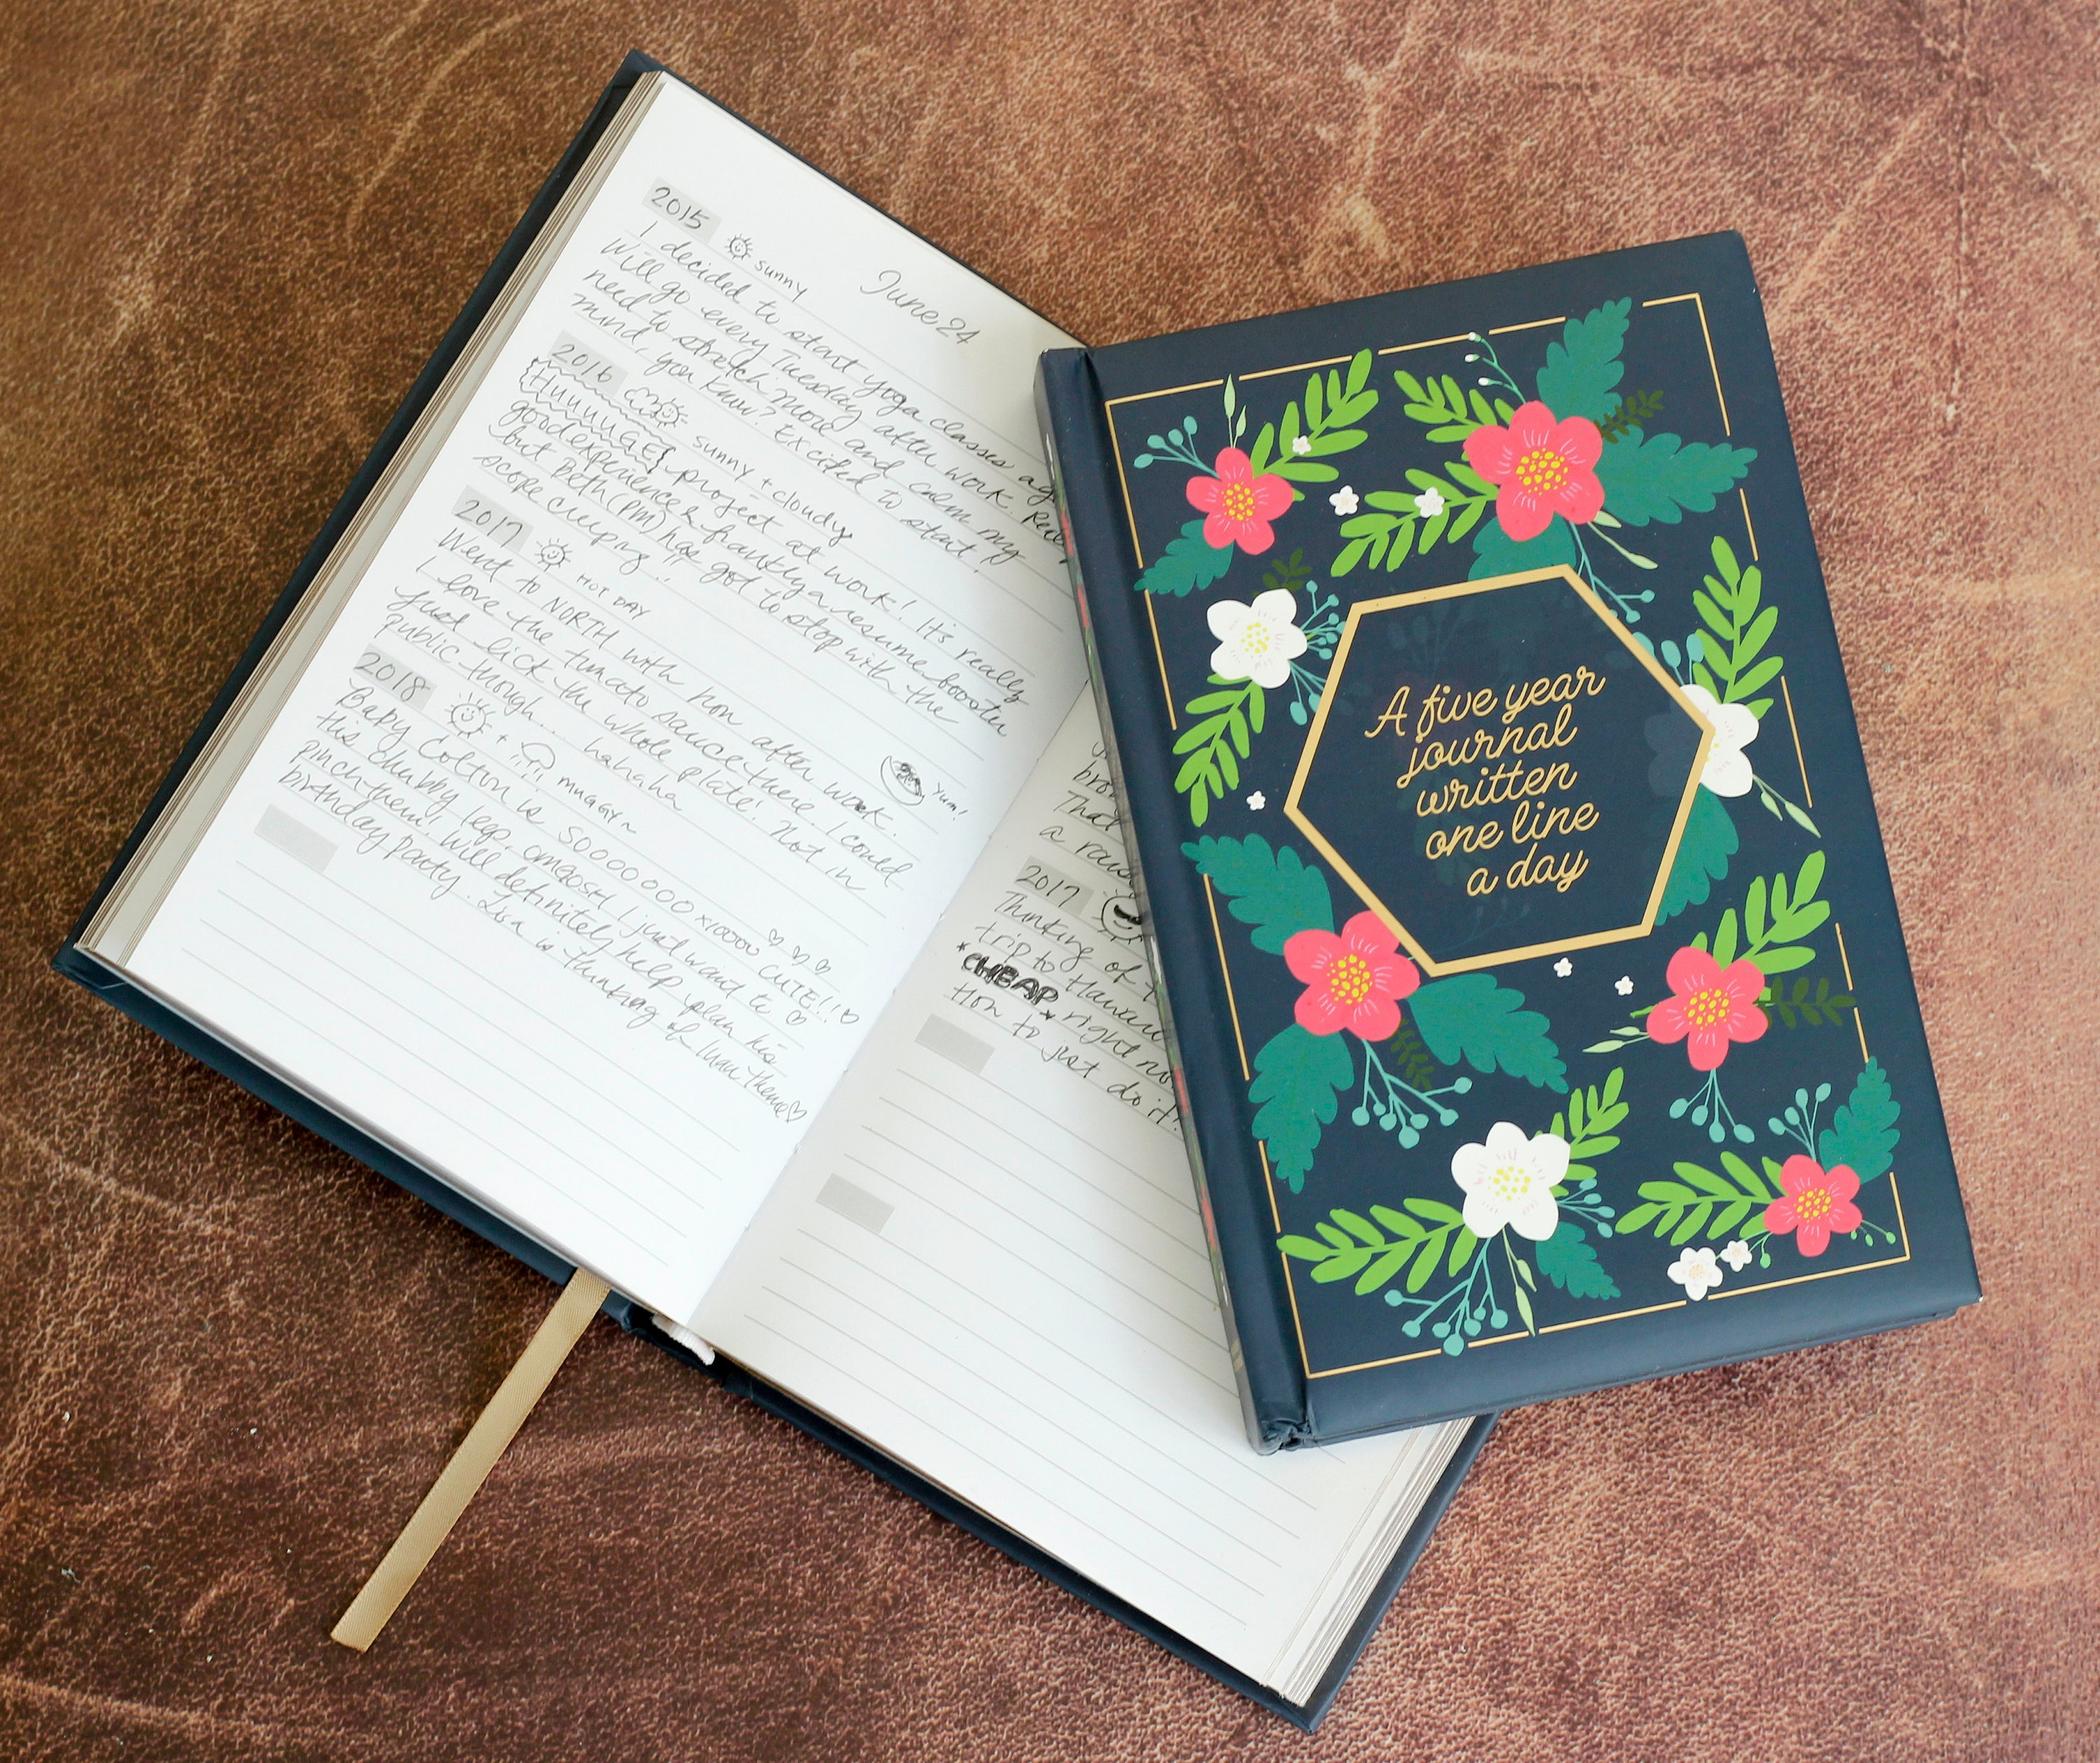 June 24
2015 sunny
I decided to start yoga classes
Will go every Tuesday after work.
need to stretch more and calm my
mind, you know? Excited to start!
2016 sunny + cloudy
{HUUUUGE} project at work! It's really
good experience & frankly a resume booster
but Beth (PM) has got to stop with the
scope creeping..
2017 HOT DAY
Went to NORTH with mom after work.
I love the tomato sauce there. I could
just lick the whole plate! Not in
public though... hahaha
Yum!
2018 + MUGGY~
Baby Colton is SOOOOOOO x10000 CUTE!!
His chubby legs, OMGOSH I just want to
pinch them! Will definitely help plan his
birthday party. Lisa is thinking of theme
That
a
2017
Thinking of
trip to Hawaii
*CHEAP* right
Hon to just do it!
A five year
journal
written
one line
a day